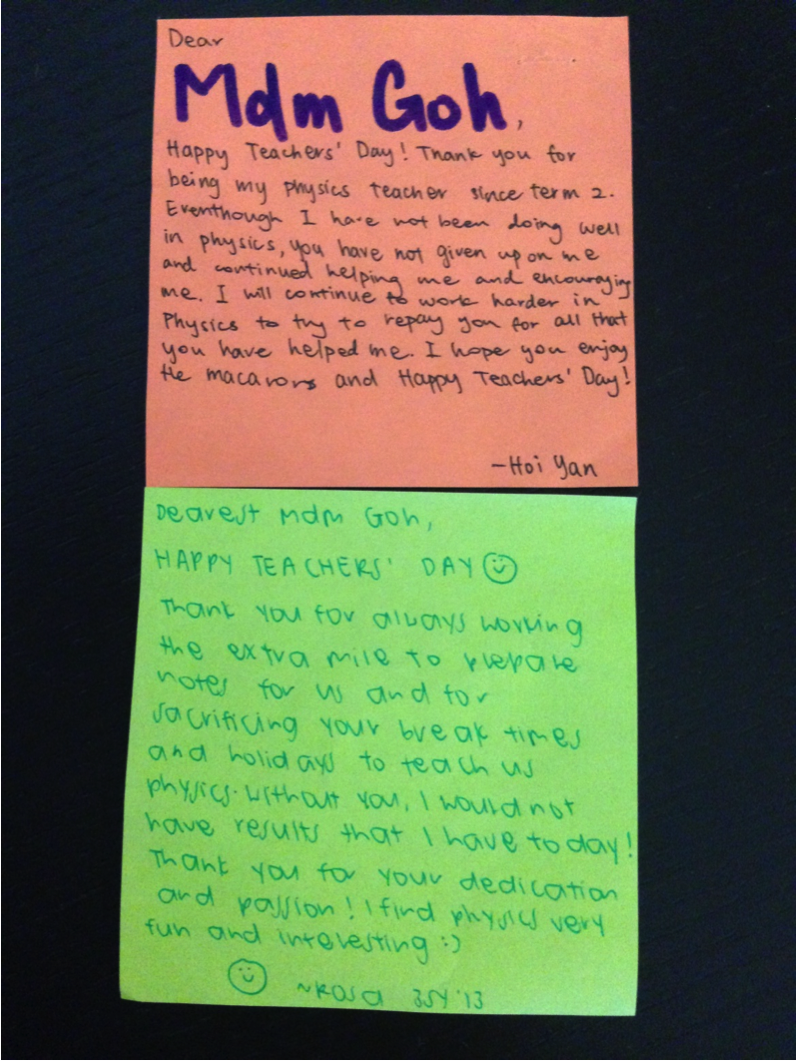 Dear
Mdm Goh,
Happy Teachers' Day! Thank you for
being my physics teacher since term 2.
Eventhough I have not been doing well
in physics, you have not given up on me
and continued helping me and encouraging
me. I will continue to work harder in
Physics to try to repay you for all that
you have helped me. I hope you enjoy
the macarons and Happy Teachers' Day!
-Hoi Yan
Dearest Mdm Goh,
HAPPY TEACHERS' DAY
Thank you for always working
the extra mile to prepare
notes for us and for
sacrificing your break times
and holidays to teach us
physics. Without you, I would not
have results that I have today!
Thank you for your dedication
and passion! I find physics very
fun and interesting :)
~Rosa 3SY'13